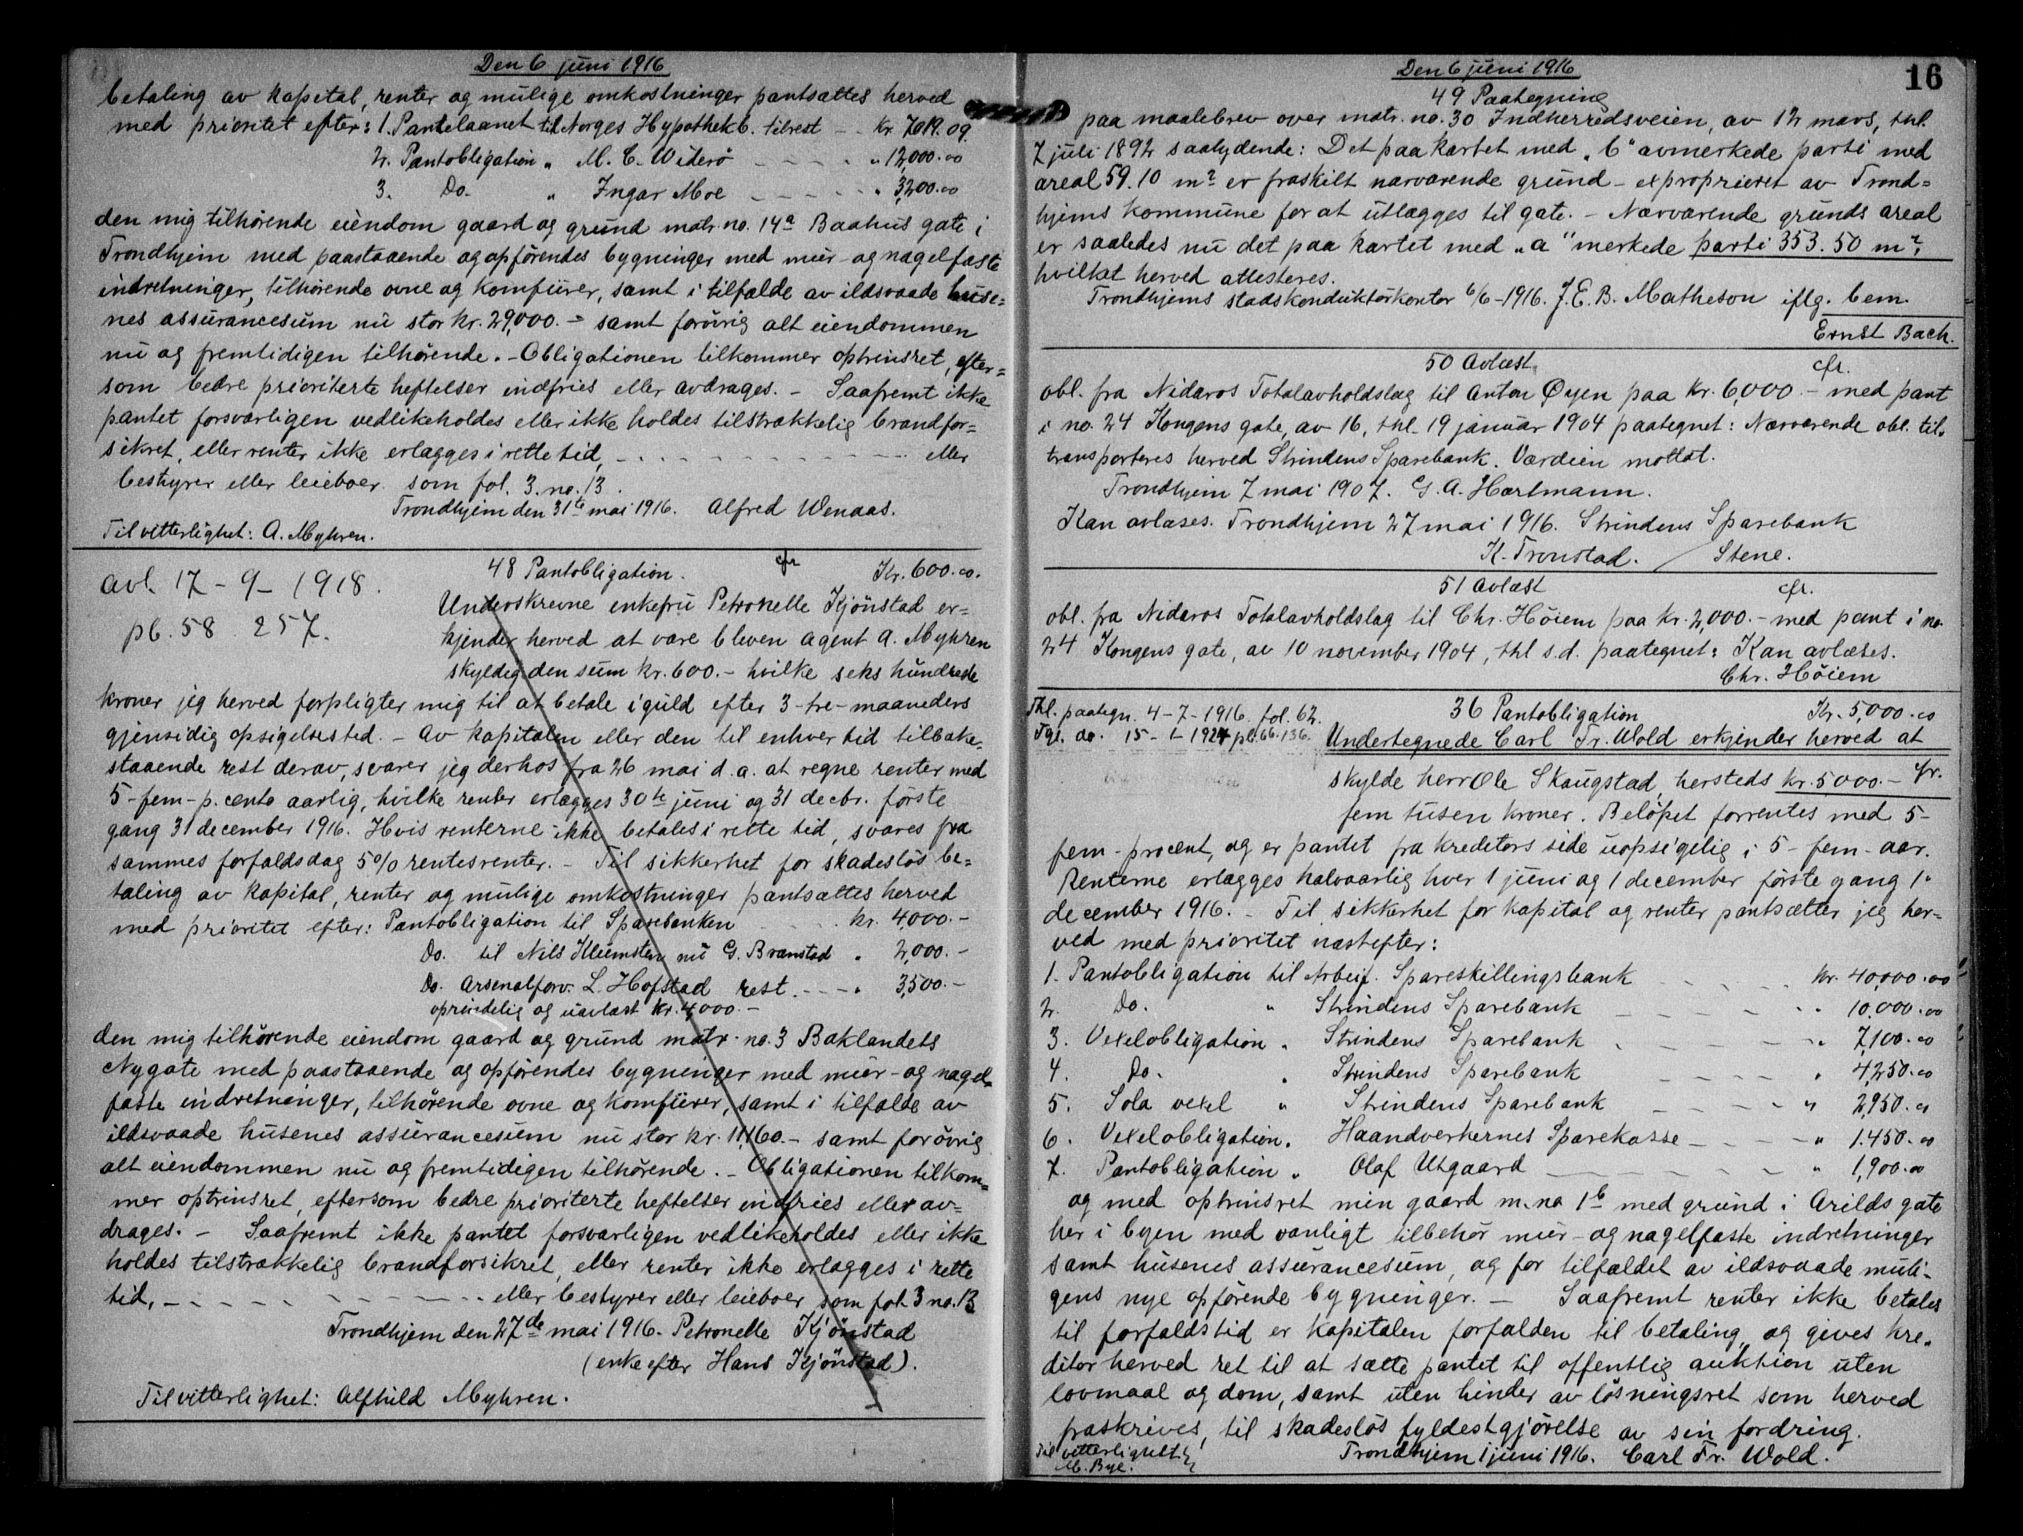 Den 6 juni 1916
betaling av kapital, renter og mulige omkostninger pantsættes herved
med prioritet efter: 1. Pantelaanet til Norges Hypothekb. tilrest - - kr. 7019.09
2. Pantobligation " M. C. Widerö - - - - " 12,000.00
3. Do. " Ingar Moe - - - - " 3,200.00
den mig tilhørende eiendom gaard og grund matr. no. 14a Baahus gate i
Trondhjem med paastaaende og opförendes bygninger med mur- og nagelfaste
indretninger, tilhørende ovne og komfurer, samt i tilfælde av ildsvaade huse=
nes assurancesum nu stor kr. 29,000.- samt forøvrig alt eiendommen
nu og fremtidigen tilhørende. - Obligationen tilkommer optrinsret, efter=
som bedre prioriterte heftelser indfries eller avdrages. - Saafremt ikke
pantet forsvarligen vedlikeholdes eller ikke holdes tilstrækkelig brandfor=
sikret, eller renter ikke erlægges i rette tid, - - - - - - - eller
bestyrer eller leieboer som fol. 3. no. 13.
Trondhjem den 31te mai 1916. Alfred Wenaas.
Til vitterlighet: A. Myhren.
48 Pantobligation. cfr Kr. 600.00.
avl. 17-9-1918.
pb. 58. 257.
Underskrevne enkefru Petronelle Kjönstad er=
kjender herved at være bleven agent A. Myhren
skyldig den sum kr. 600.- hvilke seks hundrede
kroner jeg herved forpligter mig til at betale i guld efter 3-tre-maaneders
gjensidig opsigelsestid. - Av kapitalen eller den til enhver tid tilbake-
staaende rest derav, svarer jeg derhos fra 26 mai d.a. at regne renter med
5-fem-p.cento aarlig, hvilke renter erlægges 30te juni og 31 decbr. förste
gang 31 december 1916. Hvis renterne ikke betales i rette tid, svares fra
sammes forfaldsdag 5% rentesrenter. - Til sikkerhet for skadeslös be=
taling av kapital, renter og mulige omkostninger pantsættes herved
med prioritet efter: Pantobligation til Sparebanken . . . . kr. 4,000.-
Do. til Nils Klumsten nu G. Branstad " 2,000.-
Do. Arsenalforv. L. Hofstad rest. - - - " 3,500.-
oprindelig og uavlæst kr. 4,000.-
den mig tilhörende eiendom gaard og grund matr. no. 3 Baklandets
Nygate med paastaaende og opförendes bygninger med mur- og nagel=
faste indretninger, tilhörende ovne og komfurer, samt i tilfælde av
ildsvaade husenes assurancesum nu stor kr. 11,160.- samt forövrig
alt eiendommen nu og fremtidigen tilhörende. - Obligationen tilkom=
mer optrinsret, eftersom bedre prioriterte heftelser indfries eller av=
drages. - Saafremt ikke pantet forsvarligen vedlikeholdes eller ikke
holdes tilstrækkelig brandforsikret, eller renter ikke erlægges i rette
tid, - - - - - - - eller bestyrer eller leieboer som fol. 3 no. 13
Trondhjem den 27de mai 1916. Petronelle Kjönstad
(enke efter Hans Kjönstad).
Til vitterlighet: Alfhild Myhren.
Den 6 juni 1916
16
49 Paategning
paa maalebrev over matr. no. 30 Indherredsveien, av 12 mars, thl.
7 juli 1892 saalydende: Det paa kartet med "b" avmerkede parti med
areal 59.10 m² er fraskilt nærværende grund - exproprieret av Trond=
hjems kommune for at utlægges til gate. - Nærværende grunds areal
er saaledes nu det paa kartet med "a" merkede parti 353.50 m²,
hvilket herved attesteres.
Trondhjems stadskonduktörkontor 6/6-1916. J. E. B. Matheson iflg. bem.
Ernst Bach.
50 Avlæst. cfr.
obl. fra Nidaros Totalavholdslag til Anton Øyen paa kr. 6,000.- med pant
i no. 24 Kongens gate, av 16, thl. 19 januar 1904 paategnet: Nærværende obl. til-
transporteres herved Strindens Sparebank. Værdien mottat.
Trondhjem 7 mai 1907. G. A. Hartmann.
Kan avlæses. Trondhjem 27 mai 1916. Strindens Sparebank
K. Tronstad. / Stene.
51 Avlæst cfr.
obl. fra Nidaros Totalavholdslag til Chr. Höiem paa kr. 2,000.- med pant i no.
24 Kongens gate, av 10 november 1904, thl s.d. paategnet: Kan avlæses.
Chr. Höiem
36 Pantobligation Kr. 5,000.00
Thl. paategn. 4-7-1916. fol. 62.
Tgl. do. 15-1-1924 pb. 66. 136.
Undertegnede Carl Fr. Wold erkjender herved at
skylde herr Ole Skaugstad, hersteds kr. 5000.- cfr.
fem tusen kroner. Belöpet forrentes med 5-
fem-procent, og er pantet fra kreditors side uopsigelig i 5-fem-aar.
Renterne erlægges halvaarlig hver 1 juni og 1 december förste gang 1.
december 1916. - Til sikkerhet for kapital og renter pantsætter jeg her=
ved med prioritet næstefter:
1. Pantobligation til Arbeif. Spareskillingsbank . . . . kr. 40,000.00
2. Do. " Strindens Sparebank - - - - " 10,000.00
3. Vexelobligation " Strindens Sparebank - - - - " 7,100.00
4. Do. " Strindens Sparebank - - - - " 4,250.00
5. Sola vexel " Strindens Sparebank - - - - " 2,950.00
6. Vexelobligation " Haandverkernes Sparekasse - - - - " 1.450.00
7. Pantobligation " Olaf Utgaard - - - - " 1,900.00
og med optrinsret min gaard m. no 1b med grund i Arilds gate
her i byen med vanligt tilbehör mur- og nagelfaste indretninger
samt husenes assurancesum, og for tilfældet av ildsvaade muli-
gens nye opförende bygninger. - Saafremt renter ikke betales
til forfaldstid er kapitalen forfalden til betaling, og gives kre-
ditor herved ret til at sætte pantet til offentlig auktion uten
lovmaal og dom, samt uten hinder av lösningsret som herved
fraskrives, til skadeslös fyldestgjörelse av sin fordring.
Trondhjem 1 juni 1916. Carl Fr. Wold.
Til vitterlighet:
M. Bye.